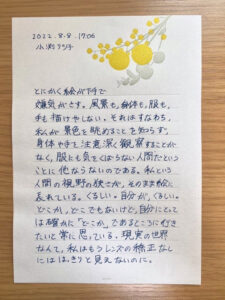 2022.8.8 17:06
小渕リコ
とにかく絵が下手で
嫌気がさす。風景も、身体も、服も、
手も描けやしない。それはすなわち、
私が景色を眺めることを知らず、
身体や手を注意深く観察することが
なく、服にも気をくばらない人間だという
ことに他ならないのである。私という
人間の視野の狭さが、そのまま絵に
表れている。くるしい。自分が、くるしい。
どこか、どこでもないけど、自分にとって
は確かに「どこか」であるところに行き
たいと常に思っている。現実の世界
なんて、私はもうレンズの矯正なし
にははっきりと見えないのに。